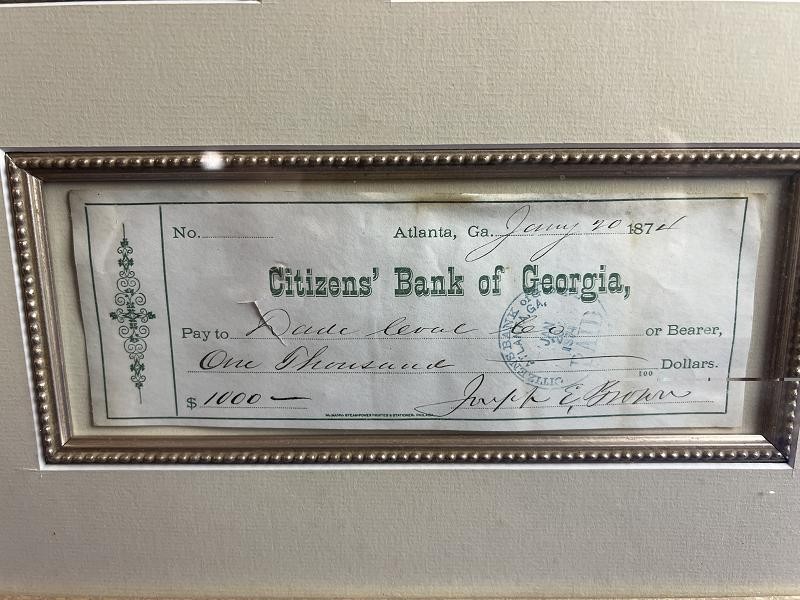 No.
Atlanta, Ga. Jany 20 1874
Citizens' Bank of Georgia,
Pay to Dade Coal Co or Bearer,
One Thousand 100 Dollars.
$ 1000 Joseph E. Brown
CITIZENS BANK OF
ATLANTA, GA.
JAN
PAID